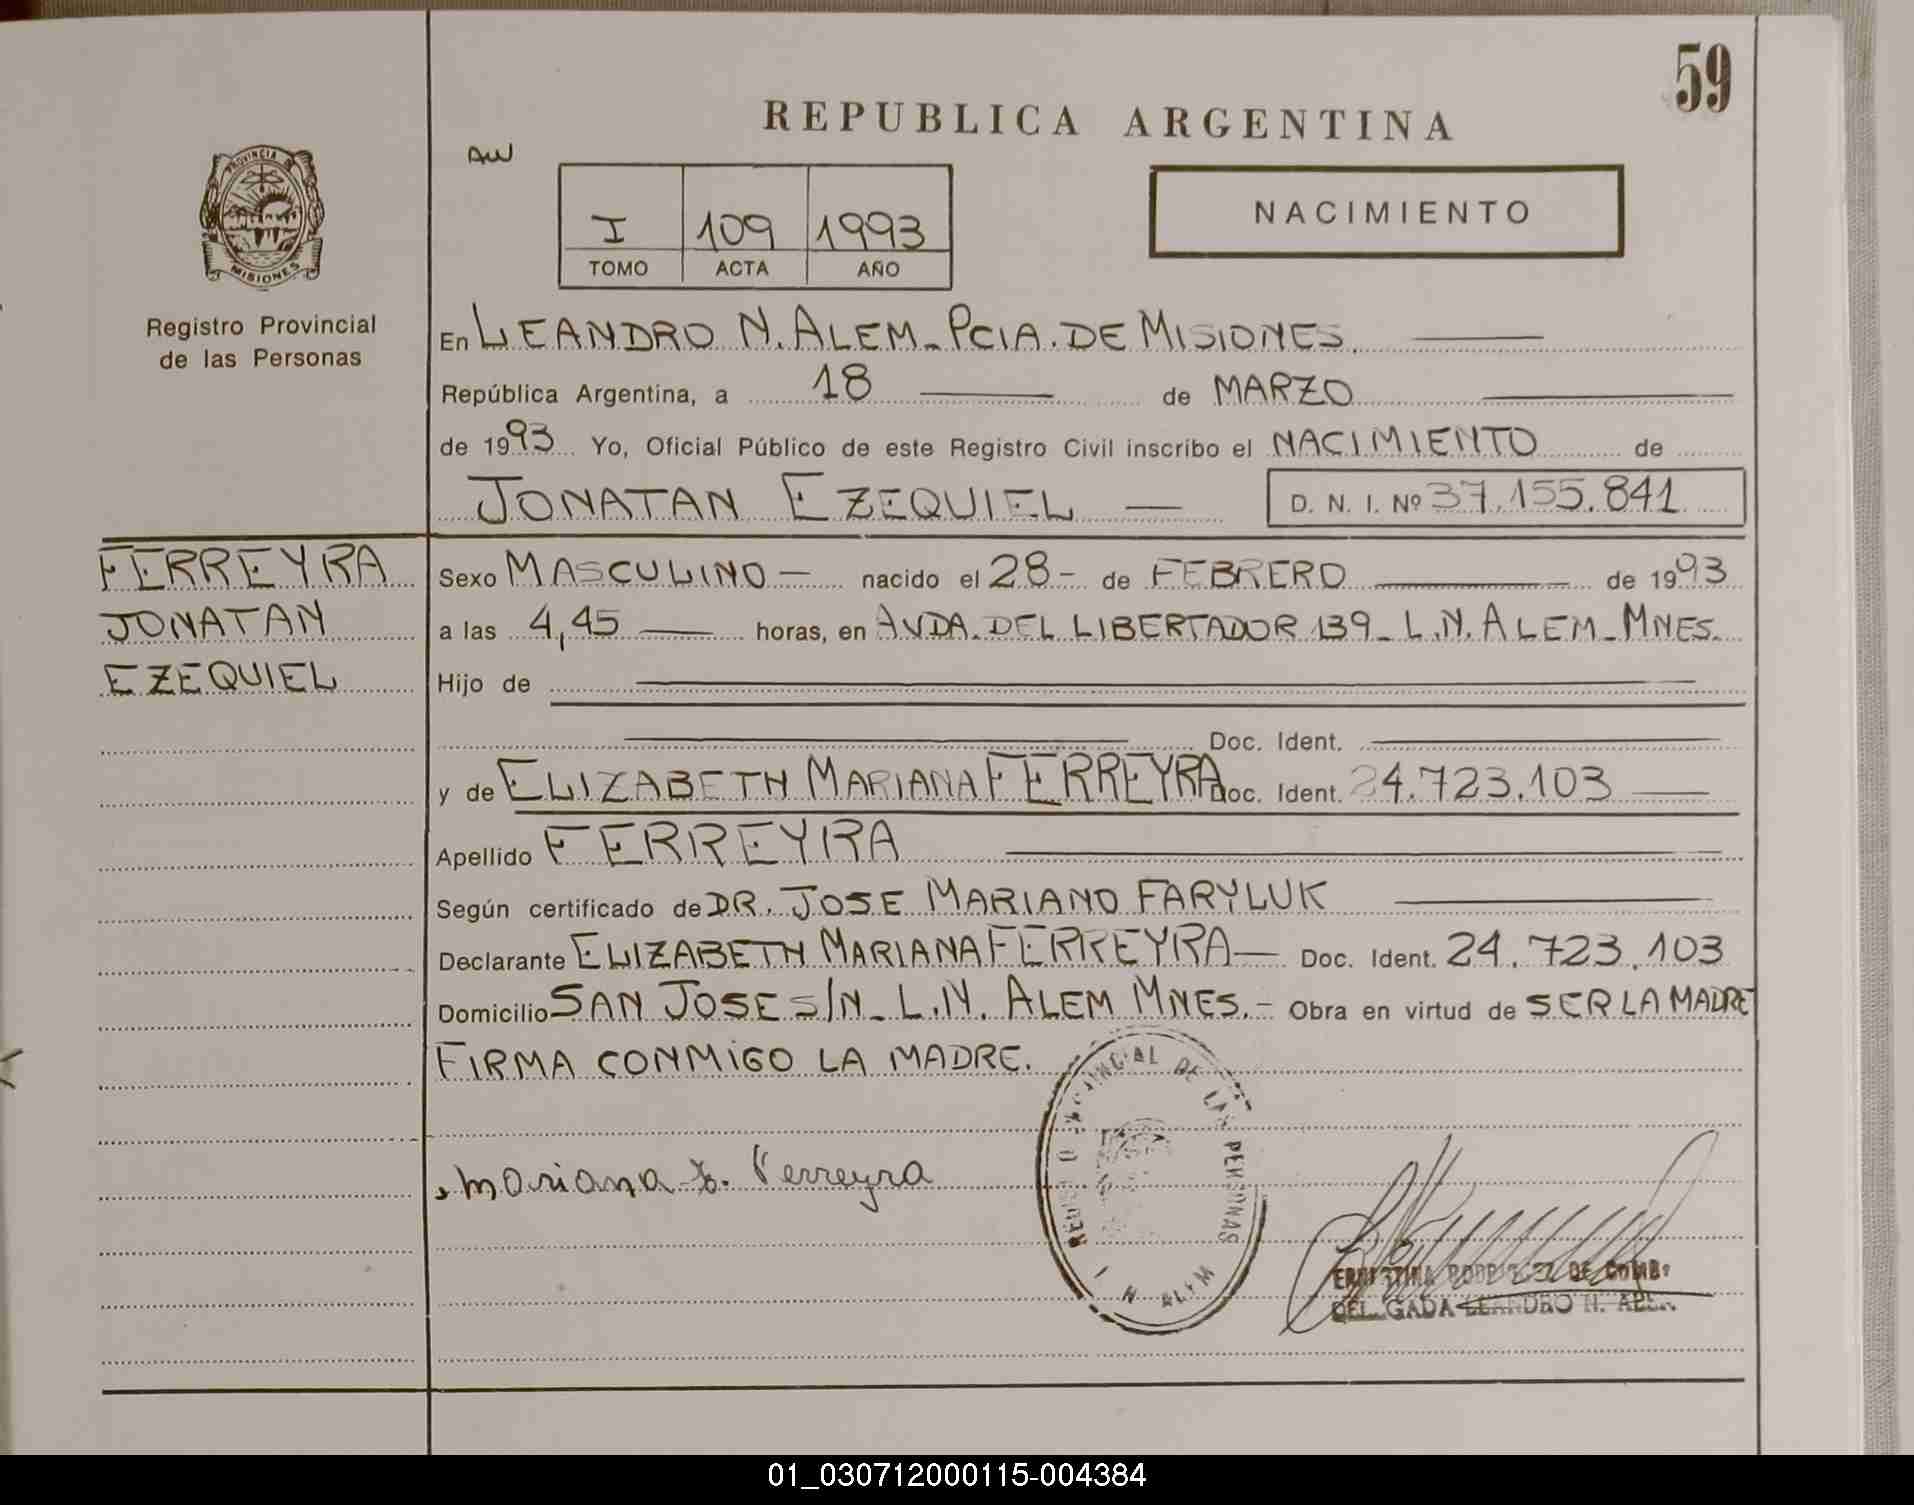 59
REPUBLICA ARGENTINA
AW
PROVINCIA DE
MISIONES
I 109 1993
TOMO ACTA AÑO
NACIMIENTO
Registro Provincial
de las Personas
En LEANDRO N. ALEM - PCIA. DE MISIONES.
República Argentina, a 18 de MARZO
de 1993 Yo, Oficial Público de este Registro Civil inscribo el NACIMIENTO de
JONATAN EZEQUIEL — D. N. I. Nº 37.155.841
FERREYRA
JONATAN
EZEQUIEL
Sexo MASCULINO — nacido el 28 - de FEBRERO de 1993
a las 4,45 horas, en AVDA. DEL LIBERTADOR 139 - L.N. ALEM - MNES.
Hijo de
Doc. Ident.
y de ELIZABETH MARIANA FERREYRA Doc. Ident. 24.723.103
Apellido FERREYRA
Según certificado de DR. JOSE MARIANO FARYLUK
Declarante ELIZABETH MARIANA FERREYRA — Doc. Ident. 24.723.103
Domicilio SAN JOSE S/N - L.N. ALEM MNES. - Obra en virtud de SER LA MADRE
FIRMA CONMIGO LA MADRE.
Mariana E. Ferreyra
REGISTRO PROVINCIAL DE LAS PERSONAS
ERNESTINA RODRIGUEZ DE
DELEGADA LEANDRO N. ALEM
01_030712000115-004384